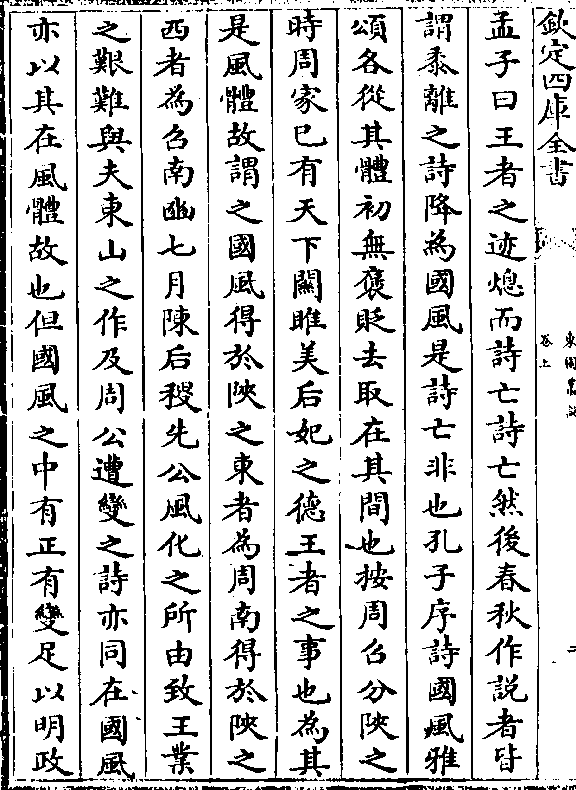 欽定四庫全書
東園叢説
卷上
二
孟子曰王者之迹熄而詩亡詩亡然後春秋作説者皆
謂黍離之詩降為國風是詩亡非也孔子序詩國風雅
頌各從其體初無褒貶去取在其間也按周召分陜之
時周家巳有天下關雎美后妃之德王者之事也為其
是風體故謂之國風得於陜之東者為周南得於陜之
西者為召南豳七月陳后稷先公風化之所由致王業
之艱難與夫東山之作及周公遭變之詩亦同在國風
亦以其在風體故也但國風之中有正有變足以明政